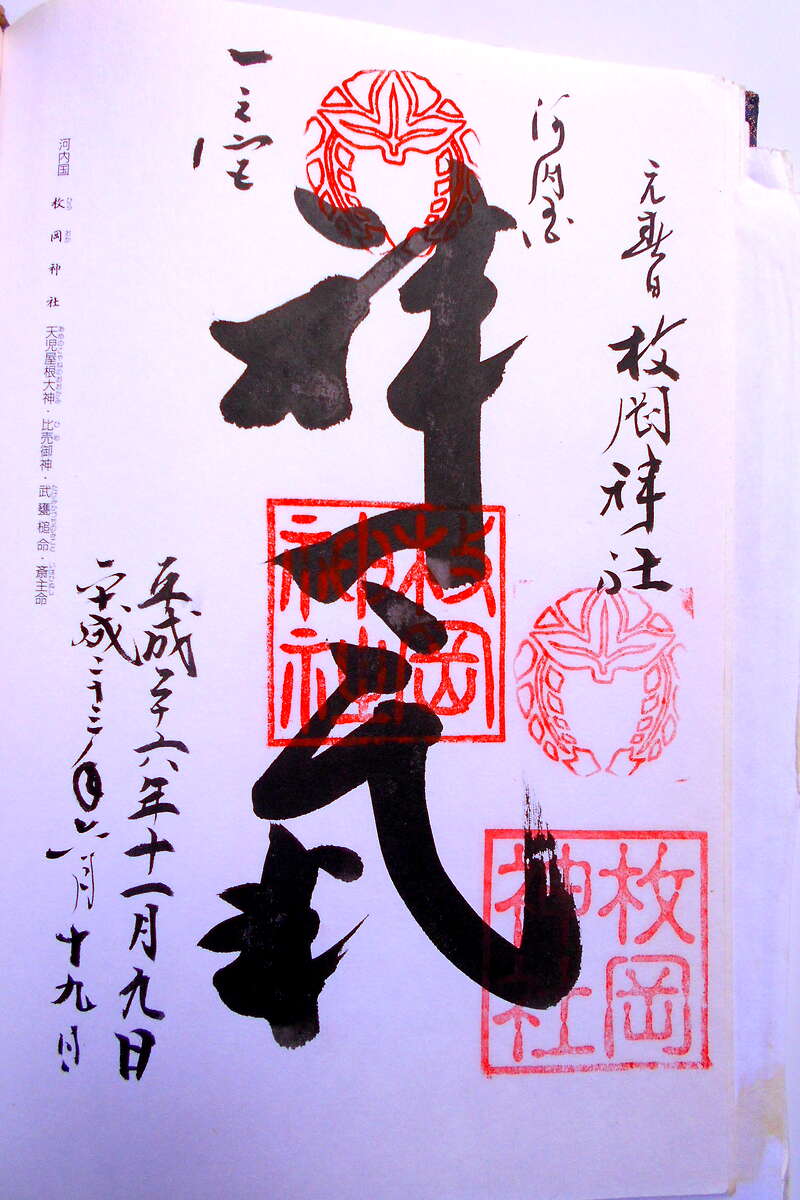 元春日 枚岡神社
枚岡神社
河内国
枚岡神社
一之宮
平成二十六年十一月九日
平成二十三年六月十九日
河内国 枚岡神社 天児屋根大神・比売御神・武甕槌命・斎主命